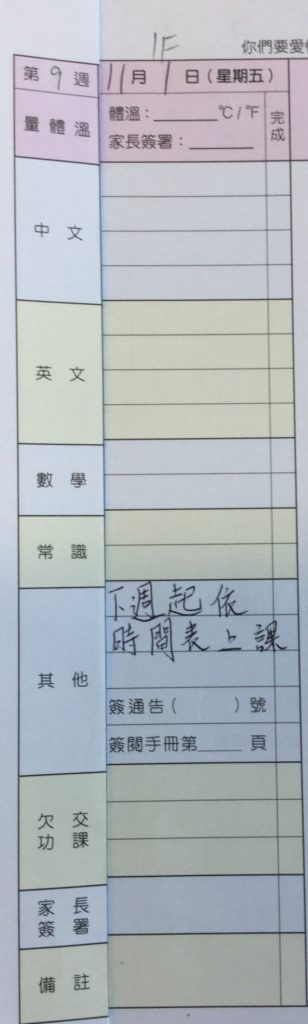 1F
你們要愛
第9週 11月1日(星期五)
量體溫 體溫：______℃/℉ 完成
家長簽署：______
中文
英文
數學
常識
其他 下週起依
時間表上課
簽通告( )號
簽閱手冊第____頁
欠交功課
家長簽署
備註